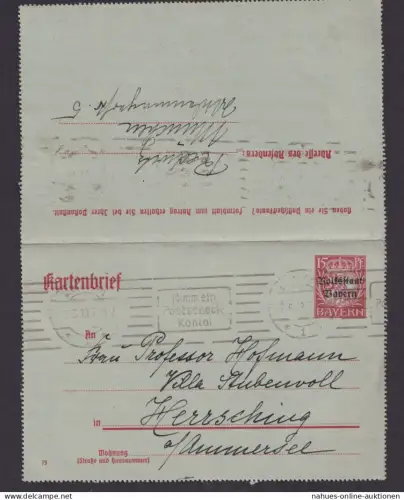 Haben Sie ein Postscheckkonto? Formblatt zum Antrag erhalten Sie bei Ihrer Postanstalt.
Adresse des Absenders
München
5
Kartenbrief
15 Pf
Volksstaat
Bayern
BAYERN
Nimm ein
Postscheck
Konto!
An
Frau Professor Hofmann
Villa Stubenvoll
in Herrsching
a/Ammersee
Wohnung
(Straße und Hausnummer)
https://www.nahues-onlineauktionen.de